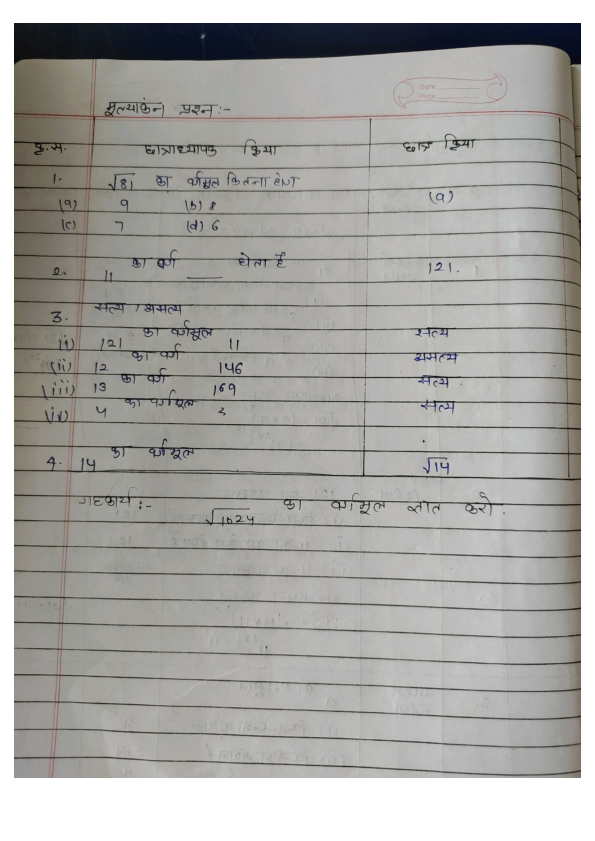 Date
Page
मूल्याकंन प्रश्न:-
क्र.स. छात्राध्यापक क्रिया छात्र क्रिया
1. √81 का वर्गमूल कितना होगा (a)
(a) 9 (b) 8
(c) 7 (d) 6
2. 11 का वर्ग ___ होता है 121.
3. सत्य / असत्य
i) 121 का वर्गमूल 11 सत्य
(ii) 12 का वर्ग 146 असत्य
(iii) 13 का वर्ग 169 सत्य
(iv) 4 का वर्गमूल 2 सत्य
4. 14 का वर्गमूल ___ √14
गृहकार्य:- √1024 का वर्गमूल ज्ञात करो.